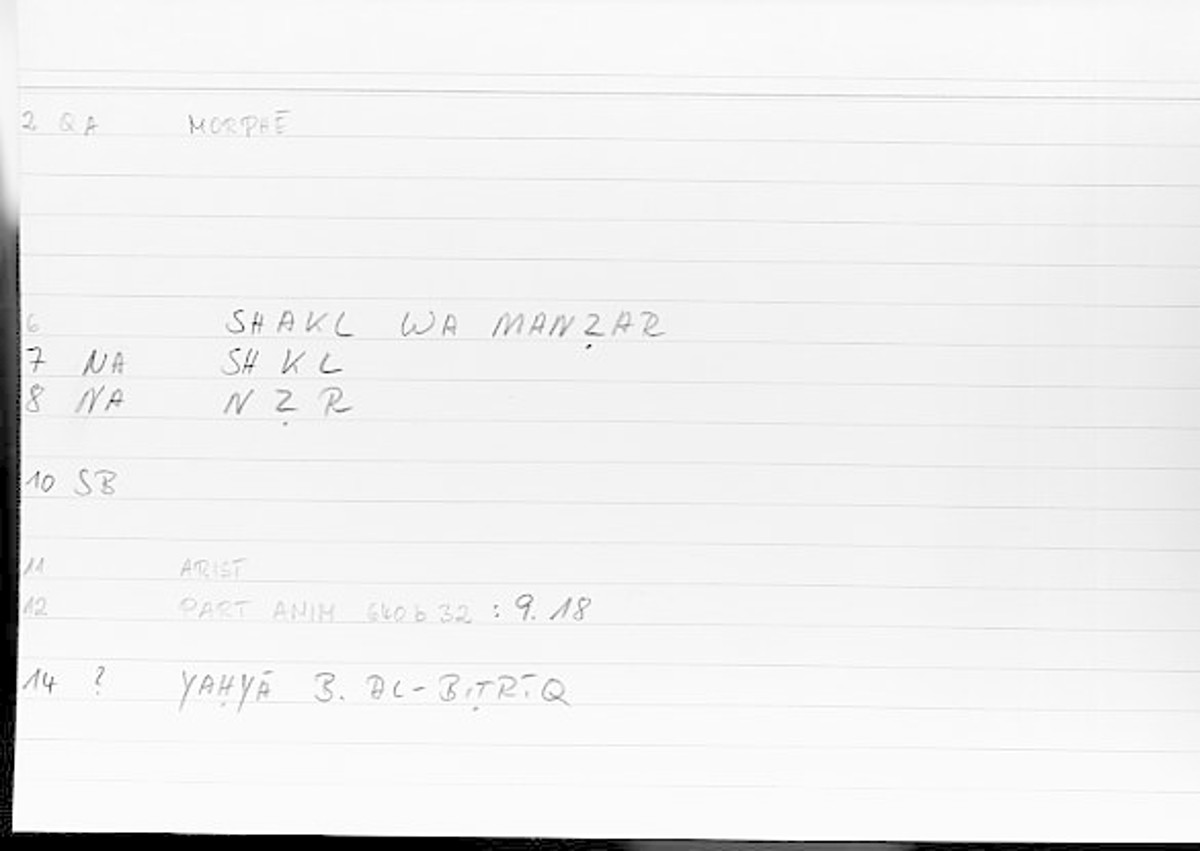 2 QA MORPHĒ
6 SHAKL WA MANẒAR
7 NA SH K L
8 NA N Ẓ R
10 SB
11 ARIST
12 PART ANIM 640 b 32 : 9. 18
14 ? YAḤYĀ B. AL-BIṬRĪQ